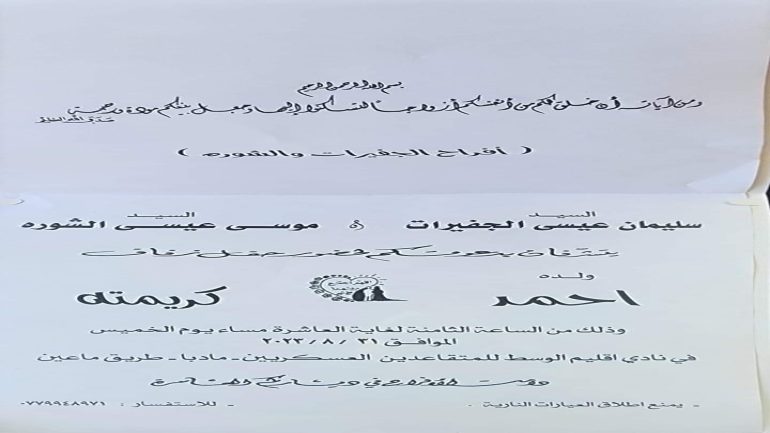 بسم الله الرحمن الرحيم
ومن آياته أن خلق لكم من أنفسكم أزواجاً لتسكنوا إليها وجعل بينكم مودة ورحمة
صدق الله العظيم
( أفراح الجفيرات والشوره )
السيد السيد
سليمان عيسى الجفيرات و موسى عيسى الشوره
يتشرفان بدعوتكم لحضور حفل زفاف
ولده
احمد كريمته
وذلك من الساعة الثامنة لغاية العاشرة مساء يوم الخميس
الموافق ٣١ / ٨ / ٢٠٢٣
في نادي اقليم الوسط للمتقاعدين العسكريين - مادبا - طريق ماعين
ودمت الأفراح في دياركم العامرة
- يمنع اطلاق العيارات النارية . - للاستفسار : ٠٧٧٩٩٤٨٩٧١